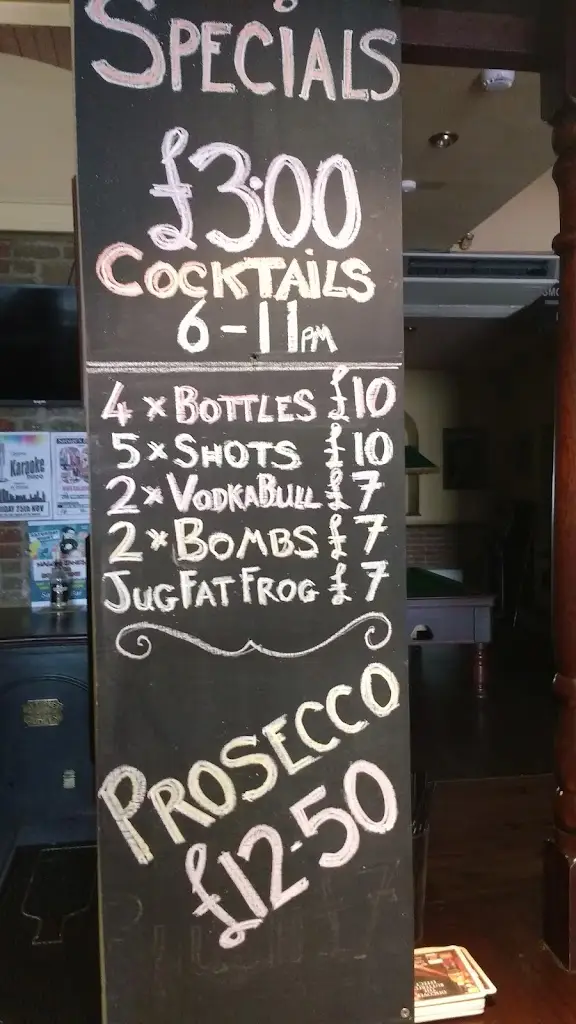 SPECIALS
£3.00
COCKTAILS
6-11PM
4 x BOTTLES £10
5 x SHOTS £10
2 x VODKABULL £7
2 x BOMBS £7
JUG FAT FROG £7
PROSECCO
£12.50
Karaoke